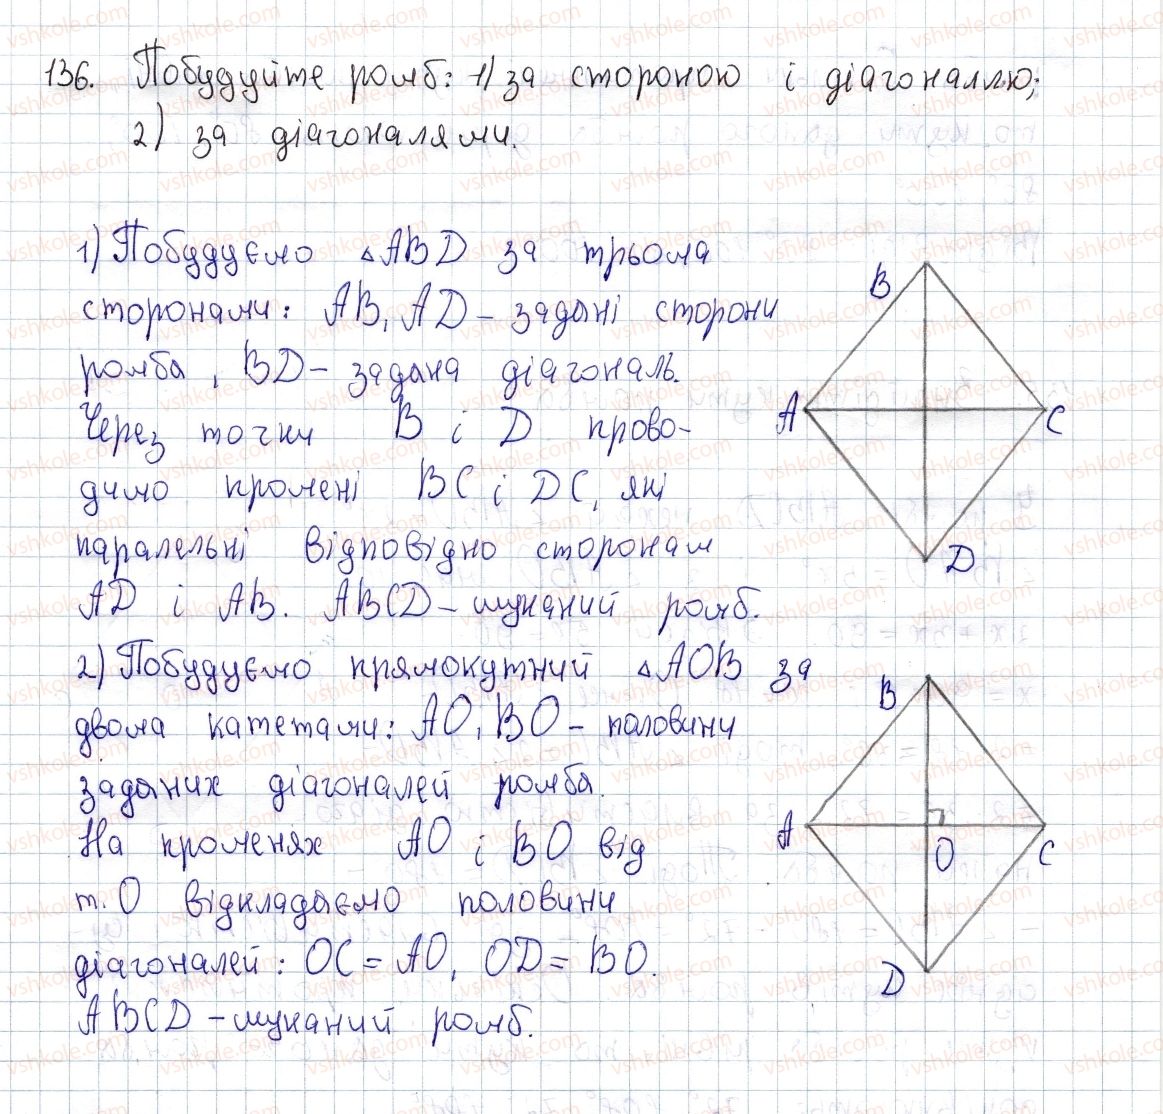 136. Побудуйте ромб: 1) за стороною і діагоналлю;
2) за діагоналями.
1) Побудуємо △ABD за трьома
сторонами: AB, AD – задані сторони
ромба, BD – задана діагональ.
Через точки B і D прово-
димо промені BC і DC, які
паралельні відповідно сторонам
AD і AB. ABCD – шуканий ромб.
B
A
C
D
2) Побудуємо прямокутний △AOB за
двома катетами: AO, BO – половини
заданих діагоналей ромба.
На променях AO і BO від
т. O відкладаємо половини
діагоналей: OC = AO, OD = BO.
ABCD – шуканий ромб.
B
A
O
C
D